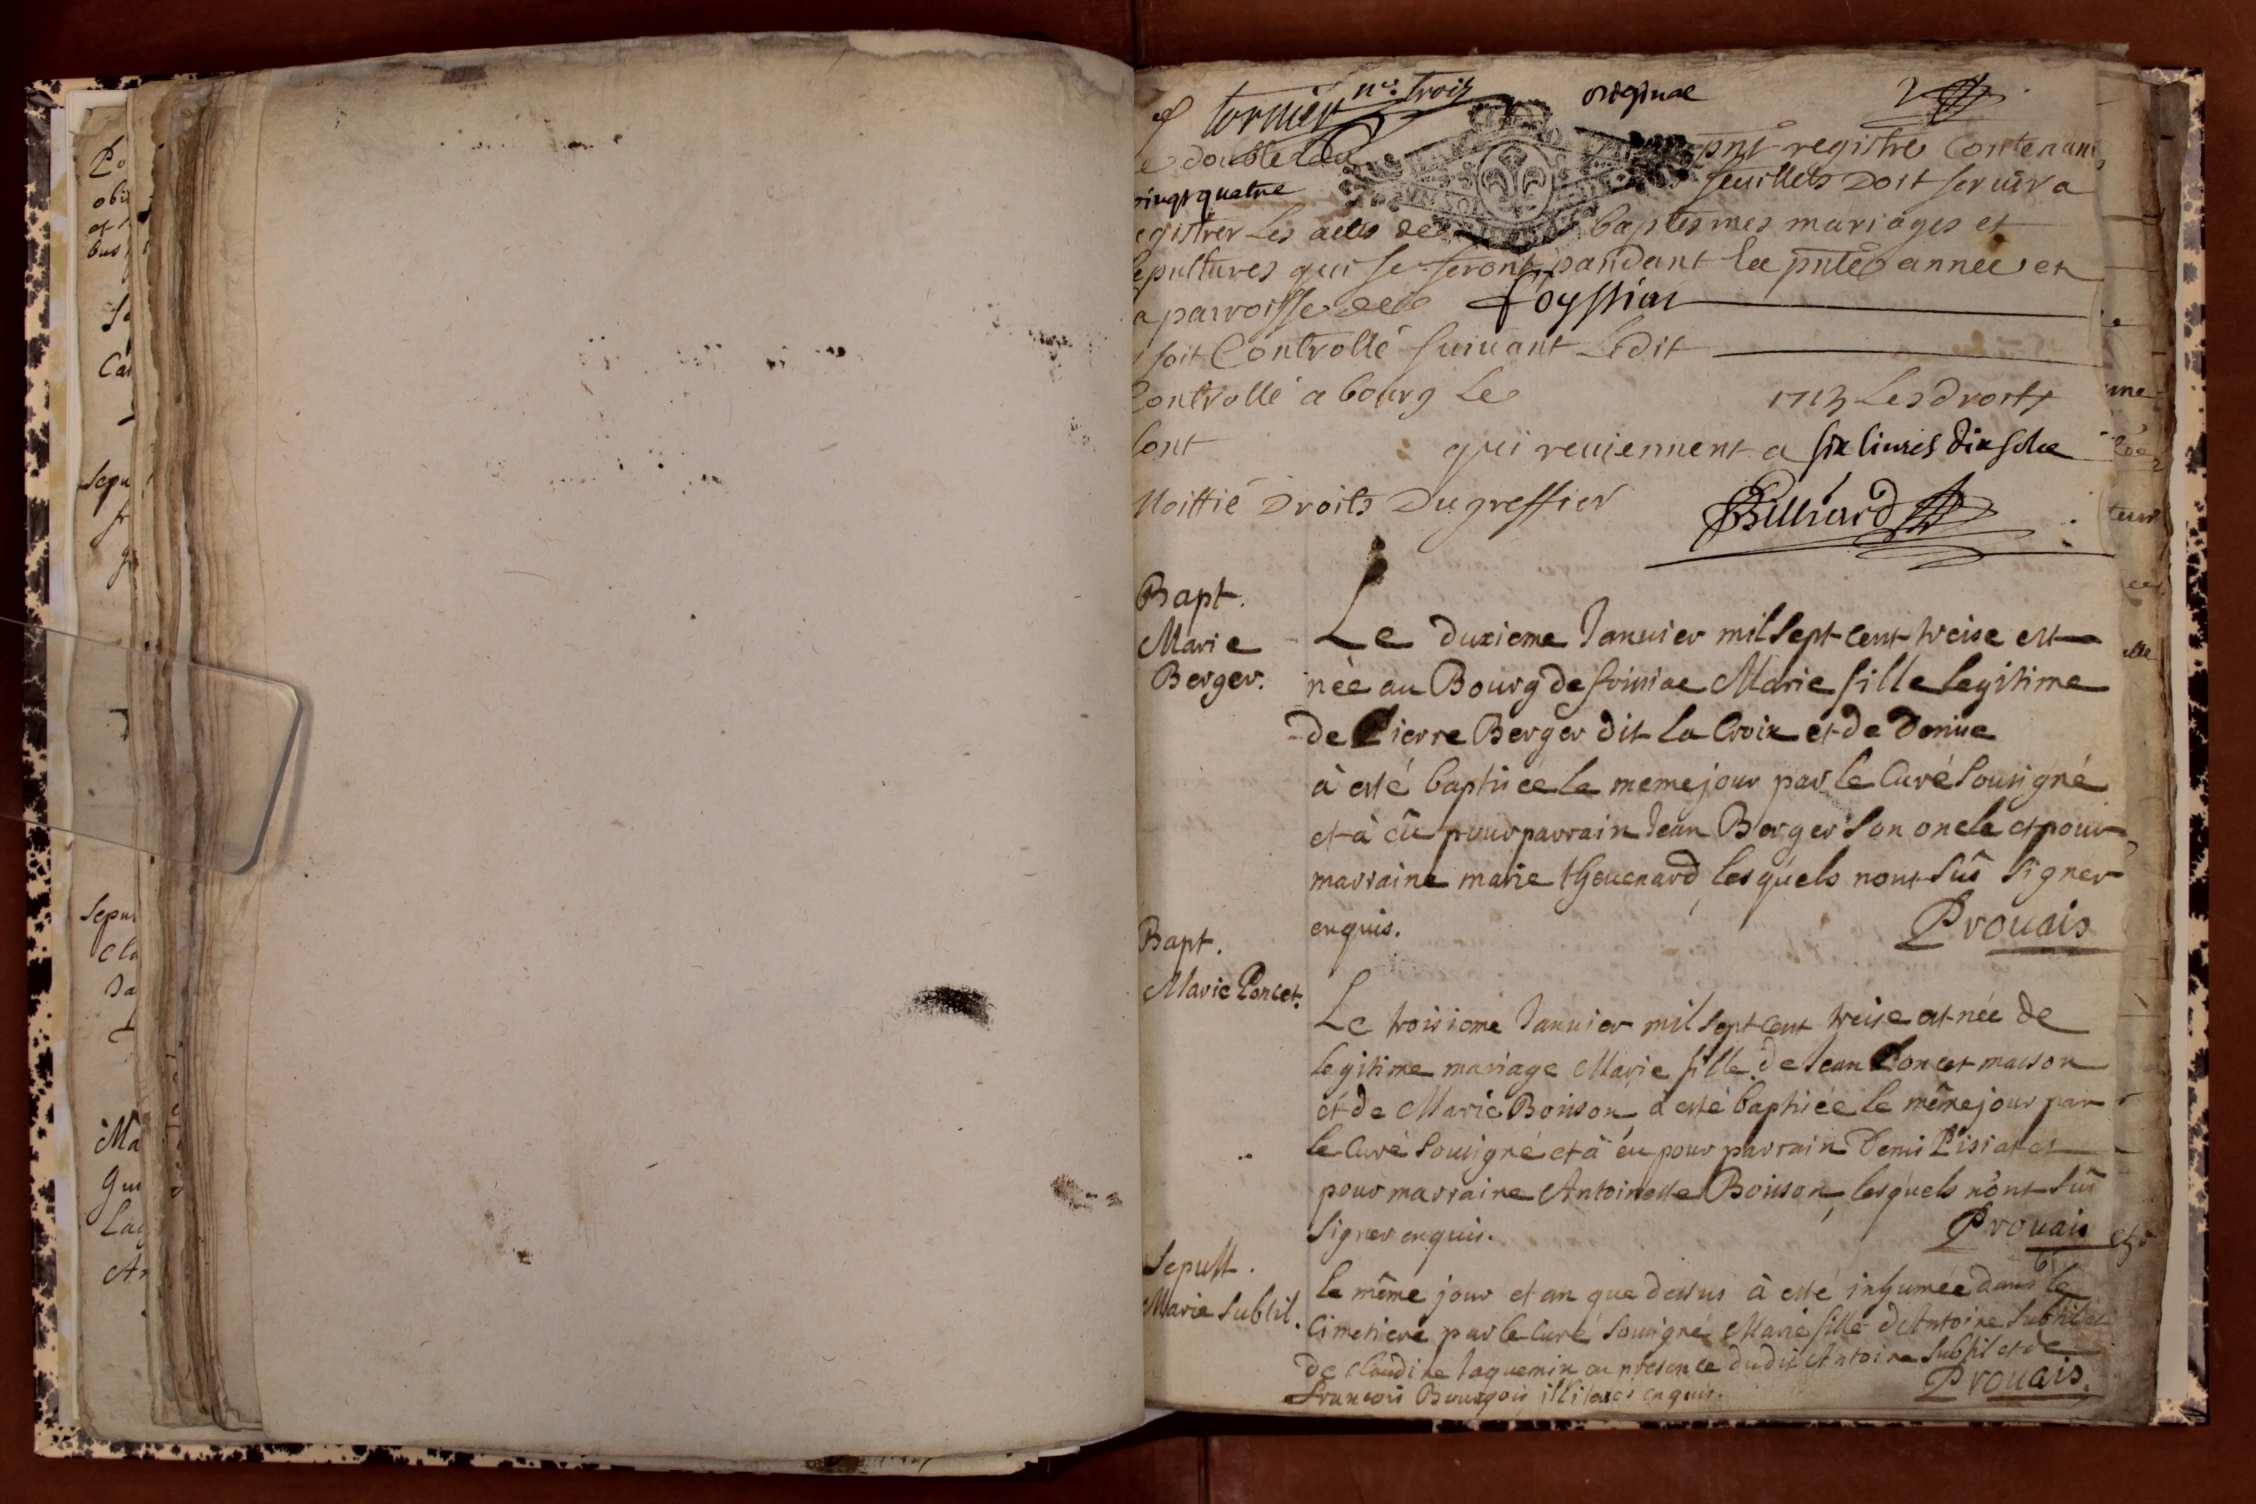 Po
obi
et
bus
Se
Cai
Sepu
fr
Sepu
Cla
Ja
Ma
Gui
Lag
An
n.º trois original 2
Le double du pnt registre Contenant
vingt quatre feuillets Doit servir a
registrer Les actes de baptesmes mariages et
sepultures qui se feront pandant la pnte année en
la parroisse de foyssiat
soit Controllé suivant Ledit
Controllé a bourg Le 1713 Les droits
sont qui reviennent a six livres dix sols
Moittié Droits Du greffier
Billiard
Bapt.
Marie
Berger.
Le duxieme Januier mil sept cent treise est
née au Bourg de Marie fille legitime
de Pierre Berger dit La Croix et de Denise
à esté baptisée le meme jour par le Curé sousigné
et à eû pour parrain Jean Berger son oncle et pour
marraine marie theuenard, lesquels nont sû signer
enquis. Prouais
Bapt.
Marie Poncet.
Le troisieme Januier mil sept cent treise est née de
legitime mariage Marie fille de Jean Poncet masson
et de Marie Boisson, à esté baptisée le même jour par
le Curé sousigné et à eu pour parrain Denis et
pour marraine Antoinette Boisson, lesquels nont sû
signer enquis. Prouais
Sepult.
Marie Subtil.
le même jour et an que dessus à esté inhumée dans le
Cimetiere par le Curé sousigné Marie fille d'Antoine Subtil et
de Claudine Jaquemin en présence dudit Antoine Subtil et de
Francois Bourgois illiterés enquis. Prouais.